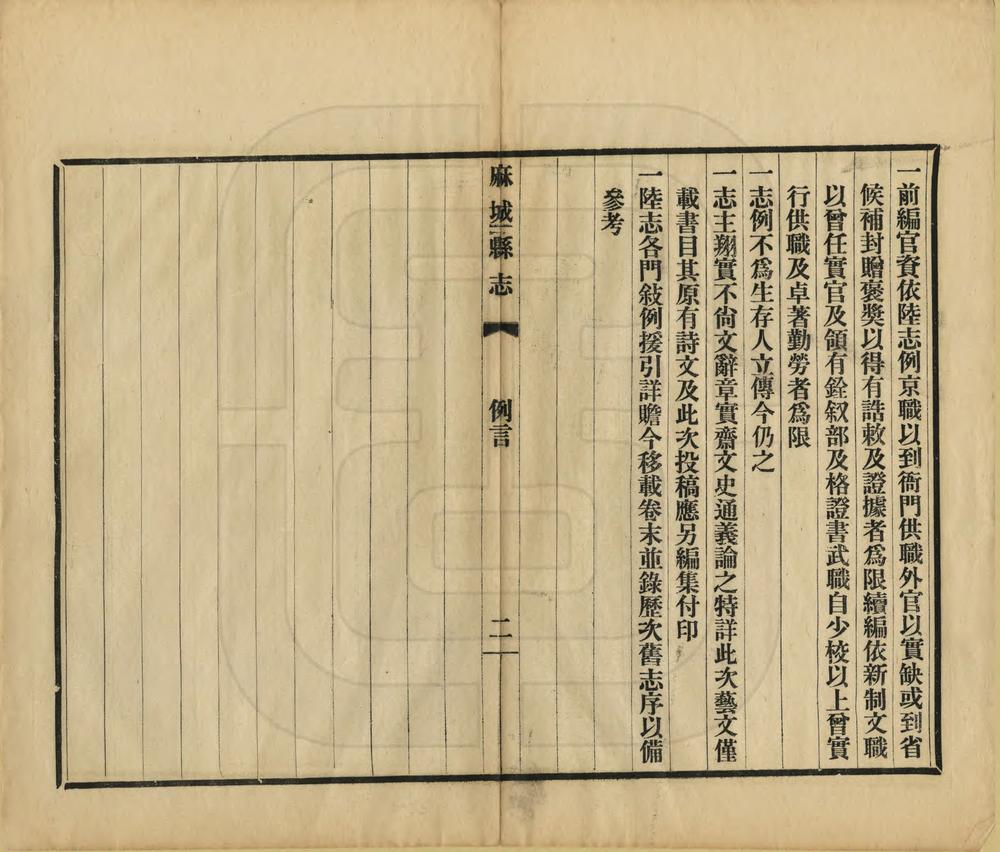 一前編官資依陸志例京職以到衙門供職外官以實缺或到省
候補封贈褒獎以得有誥敕及證據者爲限續編依新制文職
以曾任實官及領有銓叙部及格證書武職自少校以上曾實
行供職及卓著勤勞者爲限
一志例不爲生存人立傳今仍之
一志主翔實不尙文辭章實齋文史通義論之特詳此次藝文僅
載書目其原有詩文及此次投稿應另編集付印
一陸志各門敍例援引詳贍今移載卷末並錄歷次舊志序以備
參考
麻城縣志 例言 二